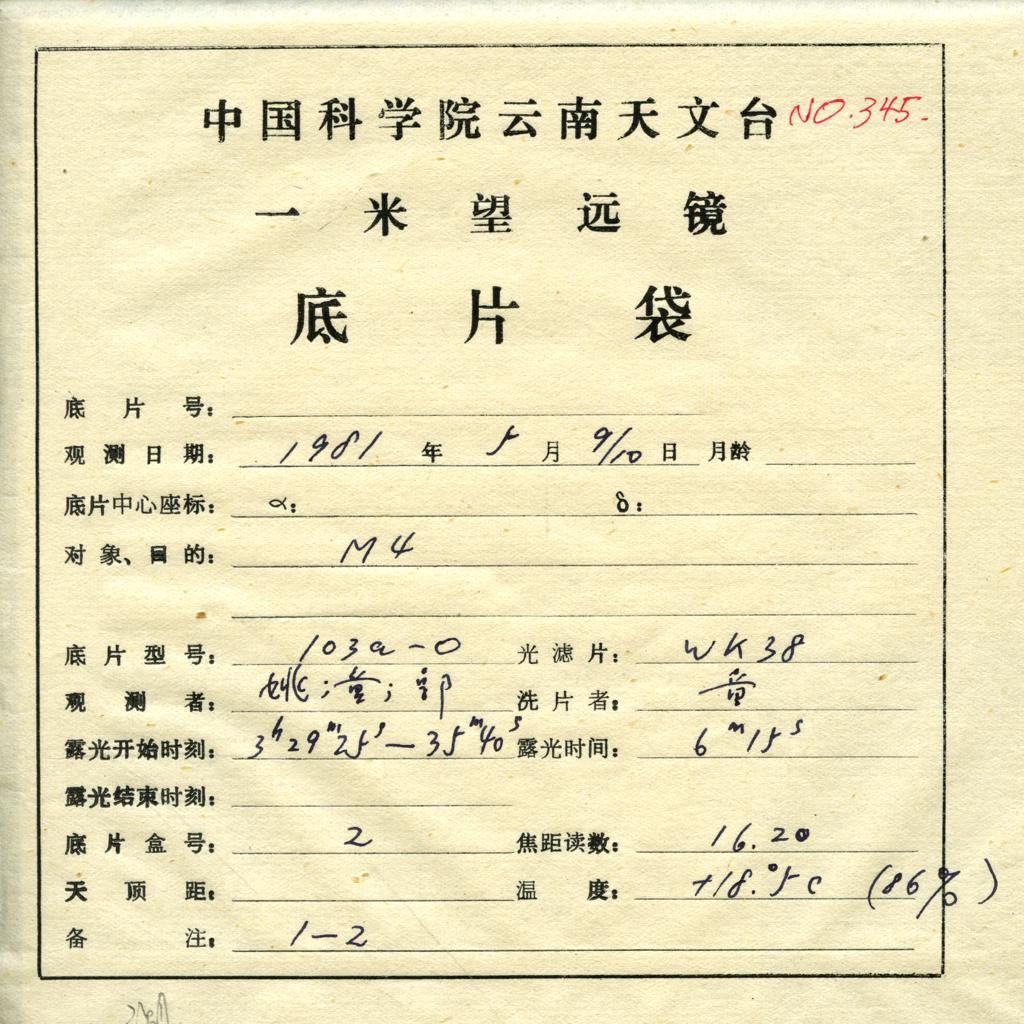 中国科学院云南天文台 NO.345.
一米望远镜
底片袋
底片号:
观测日期: 1981 年 5 月 9/10 日 月龄
底片中心座标: α: δ:
对象、目的: M4
底片型号: 103a-O 光滤片: WK38
观测者: 姚; 黄; 郭 洗片者: 黄
露光开始时刻: 3h29m25s—35m40s 露光时间: 6m15s
露光结束时刻:
底片盒号: 2 焦距读数: 16.20
天顶距: 温度: +18.°5c (86%)
备注: 1—2